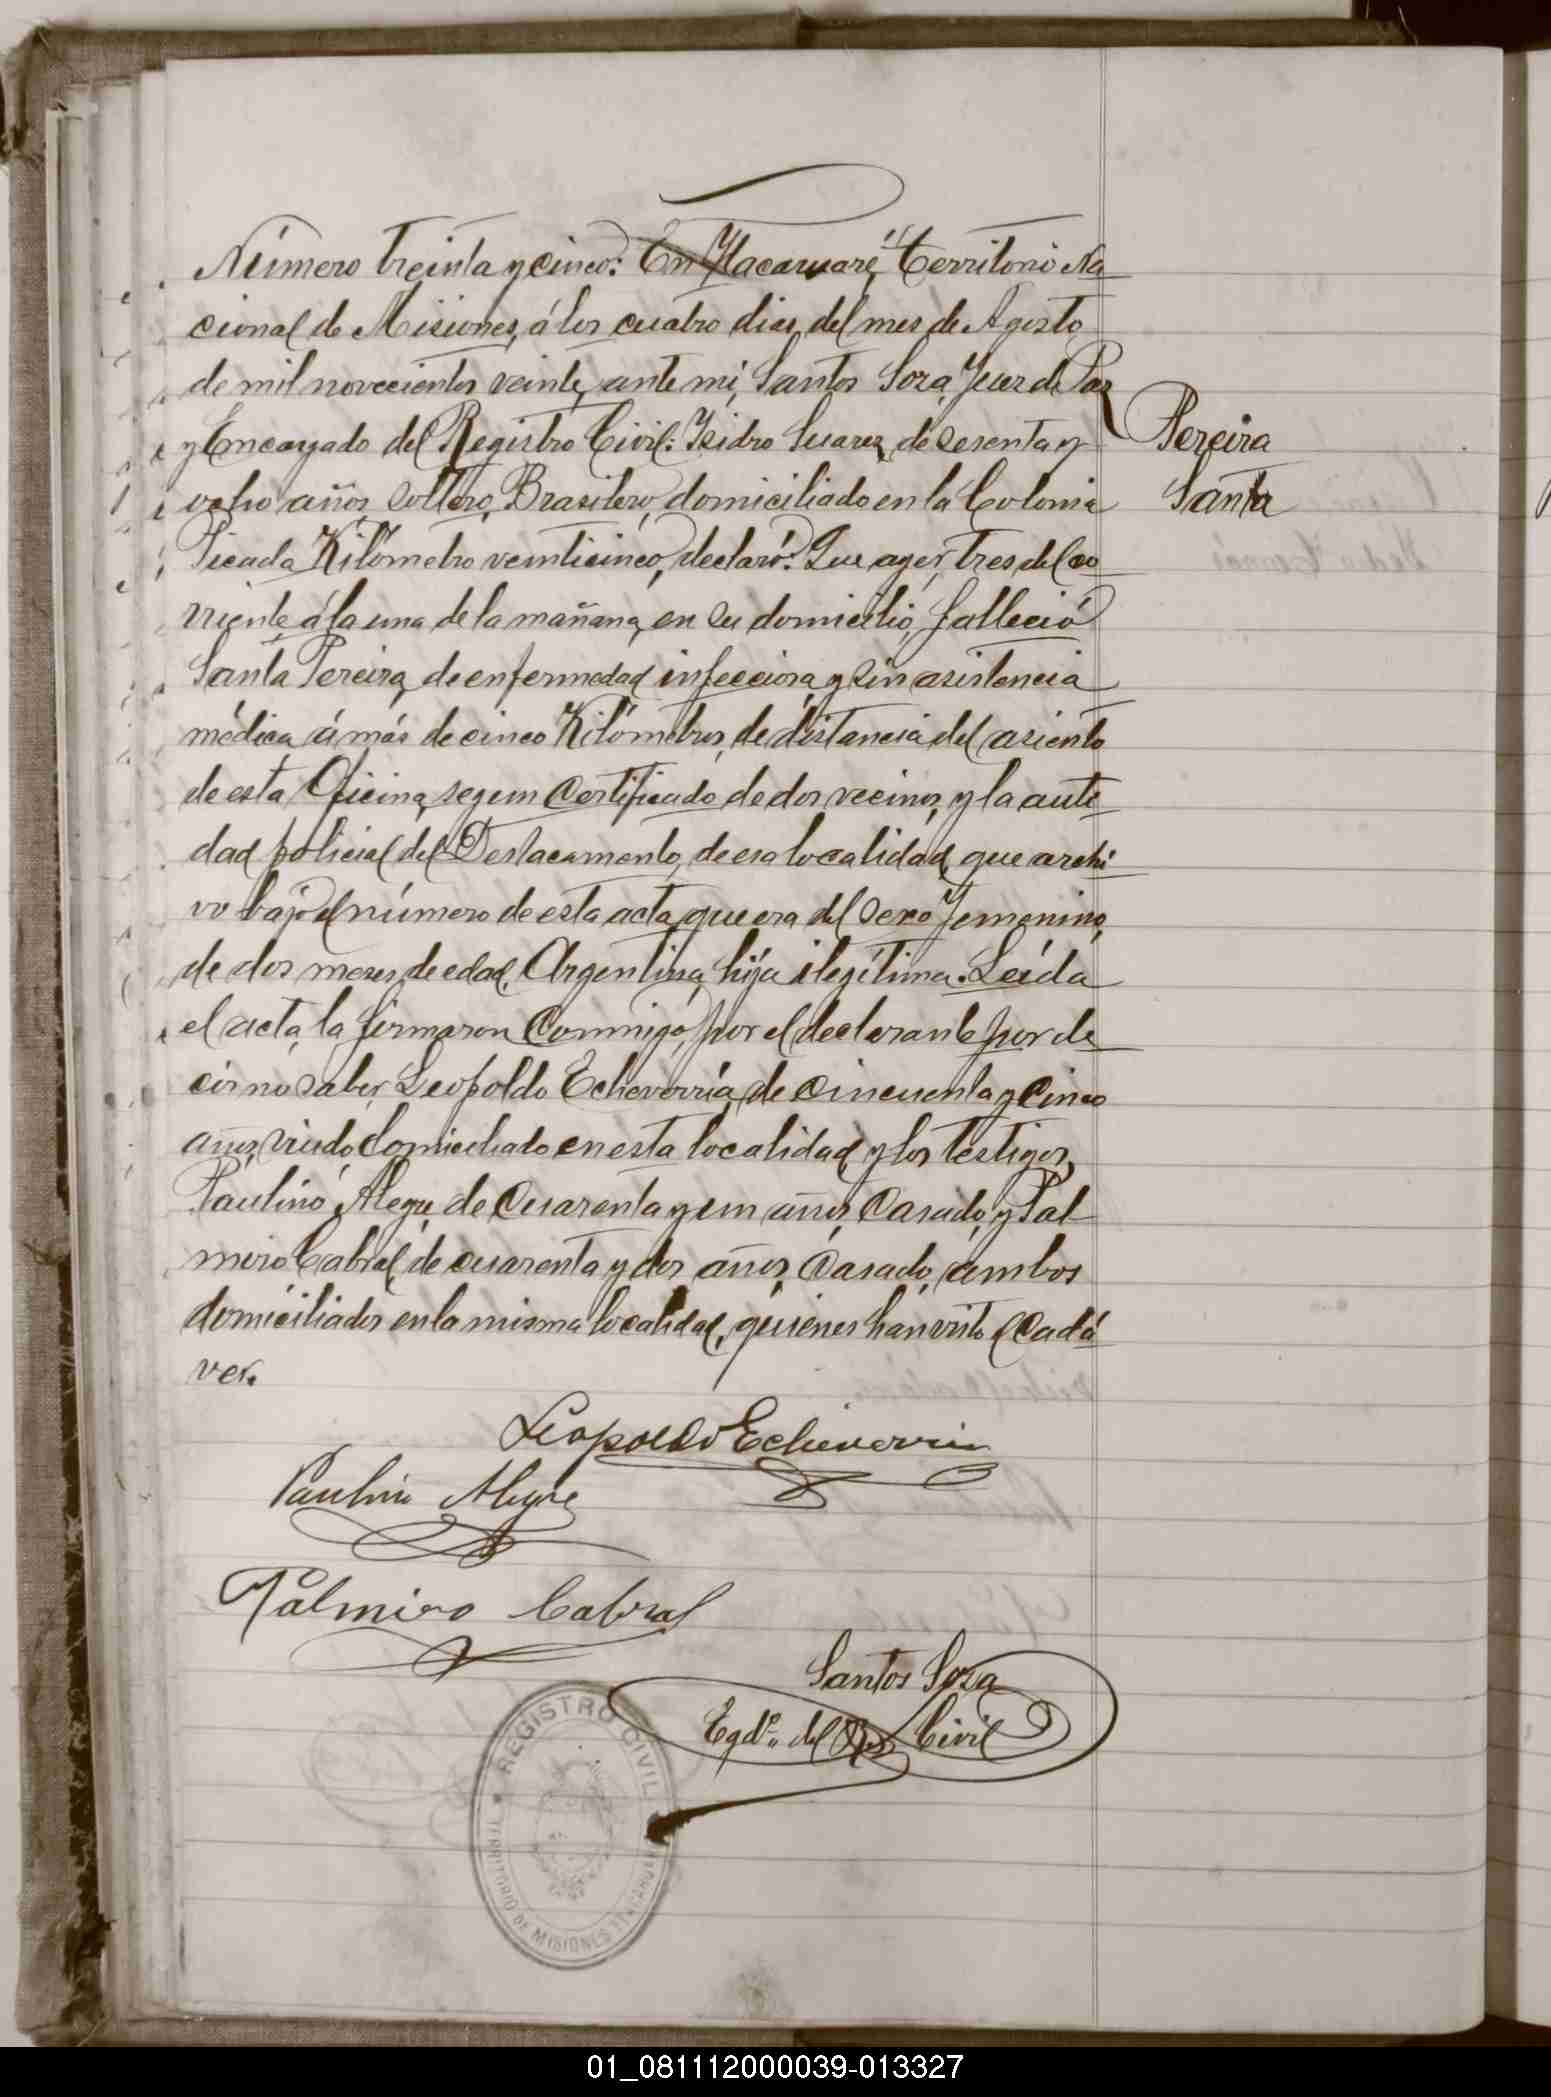 Número treinta y cinco: En Ytacaruaré, Territorio Na
cional de Misiones, á los cuatro dias del mes de Agosto
de mil novecientos veinte, ante mi, Santos Soza, Juez de Paz
y Encargado del Registro Civil: Isidro Suarez, de sesenta y
ocho años, soltero, Brasilero, domiciliado en la Colonia
Picada Kilómetro veinticinco, declaró: Que ayer, tres del co
rriente á la una de la mañana, en su domicilio, falleció
Santa Pereira, de enfermedad infecciosa, y sin asistencia
médica á más de cinco Kilómetros, de distancia del asiento
de esta Oficina, segun certificado de dos vecinos, y la auto
dad policial del Destacamento, de esa localidad, que archi
vo bajo el número de esta acta, que era del sexo femenino,
de dos meses, de edad, Argentina, hija ilegítima. Leída
el acta, la firmaron conmigo, por el declarante por de
cir no saber, Leopoldo Echeverría, de cincuenta y cinco
años, viudo, domiciliado en esta localidad, y los testigos,
Paulino Alegre, de cuarenta y un años, casado, y Pal
miro Cabral, de cuarenta y dos años, casado, ambos
domiciliados en la misma localidad, quienes han visto el cadá
ver.
Pereira
Santa
Leopoldo Echeverria
Paulino Alegre
Palmiro Cabral
Santos Soza
Egdo. del Reg Civil
REGISTRO CIVIL
TERRITORIO DE MISIONES ITACARUARÉ
01_081112000039-013327